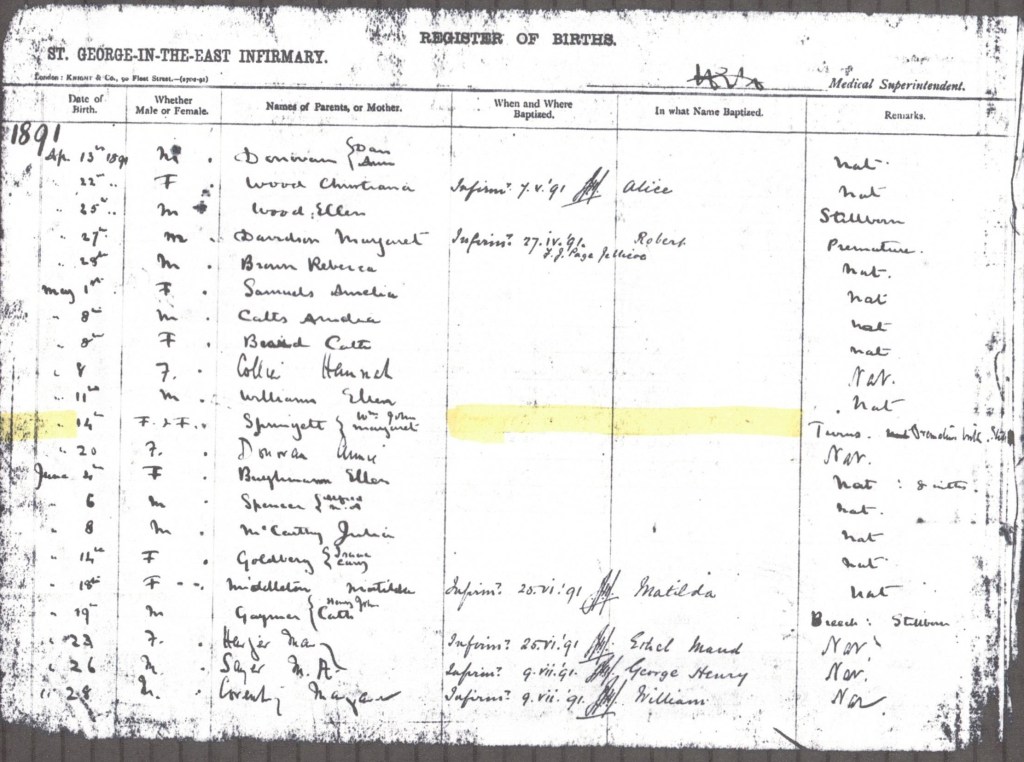 REGISTER OF BIRTHS.
ST. GEORGE-IN-THE-EAST INFIRMARY.
London: Knight & Co., 90 Fleet Street.
Medical Superintendent.
Date of Birth. Whether Male or Female. Names of Parents, or Mother. When and Where Baptized. In what Name Baptized. Remarks.
1891
Ap. 13th 1891 M Donovan { Dan Ann Nat
" 22nd " F Wood Christiana Infirmy 7.v.'91 Alice Nat
" 25th " M Wood, Ellen Stillborn
" 27th M Davidson Margaret Infirmy 27.iv.'91 Robert Premature.
F. J. Page
" 28th M Brown Rebecca Nat.
May 1st F Samuels Amelia Nat
" 8th M Nat
" 8th F Cath Nat
" 8 F. Collis Hannah Nat.
" 11th M Williams Ellen Nat
" 14th F. & F. Spungett { Wm John Margaret Twins.
" 20 F. Donovan Annie Nat.
June 2nd F Ellen Nat :
" 6 M Spencer { Nat.
" 8 M McCarthy Julia Nat
" 14th F Goldberg { Nat
" 18th F Middleton Matilda Infirmy 20.vi.'91 Matilda Nat
" 19th M Gaymer { Henry John Cath Breech: Stillborn
" 23 F. Infirmy 20.vi.'91 Ethel Maud Nat
" 26 M. Sayer M. A. Infirmy 9.vii.91. George Henry Nat.
" 28 M. Infirmy 9.vii.'91 William Nat